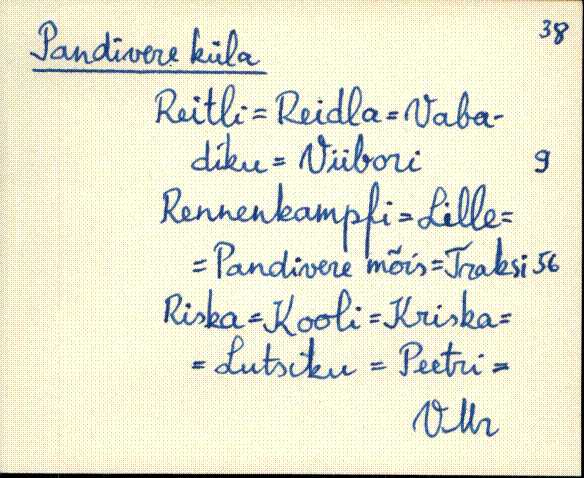 38
Pandivere küla
Reitli = Reidla = Vaba-
diku = Viibori 9
Rennenkampfi = Lille =
= Pandivere mõis = Traksi 56
Riska = Kooli = Kriska =
= Lutsiku = Peetri =